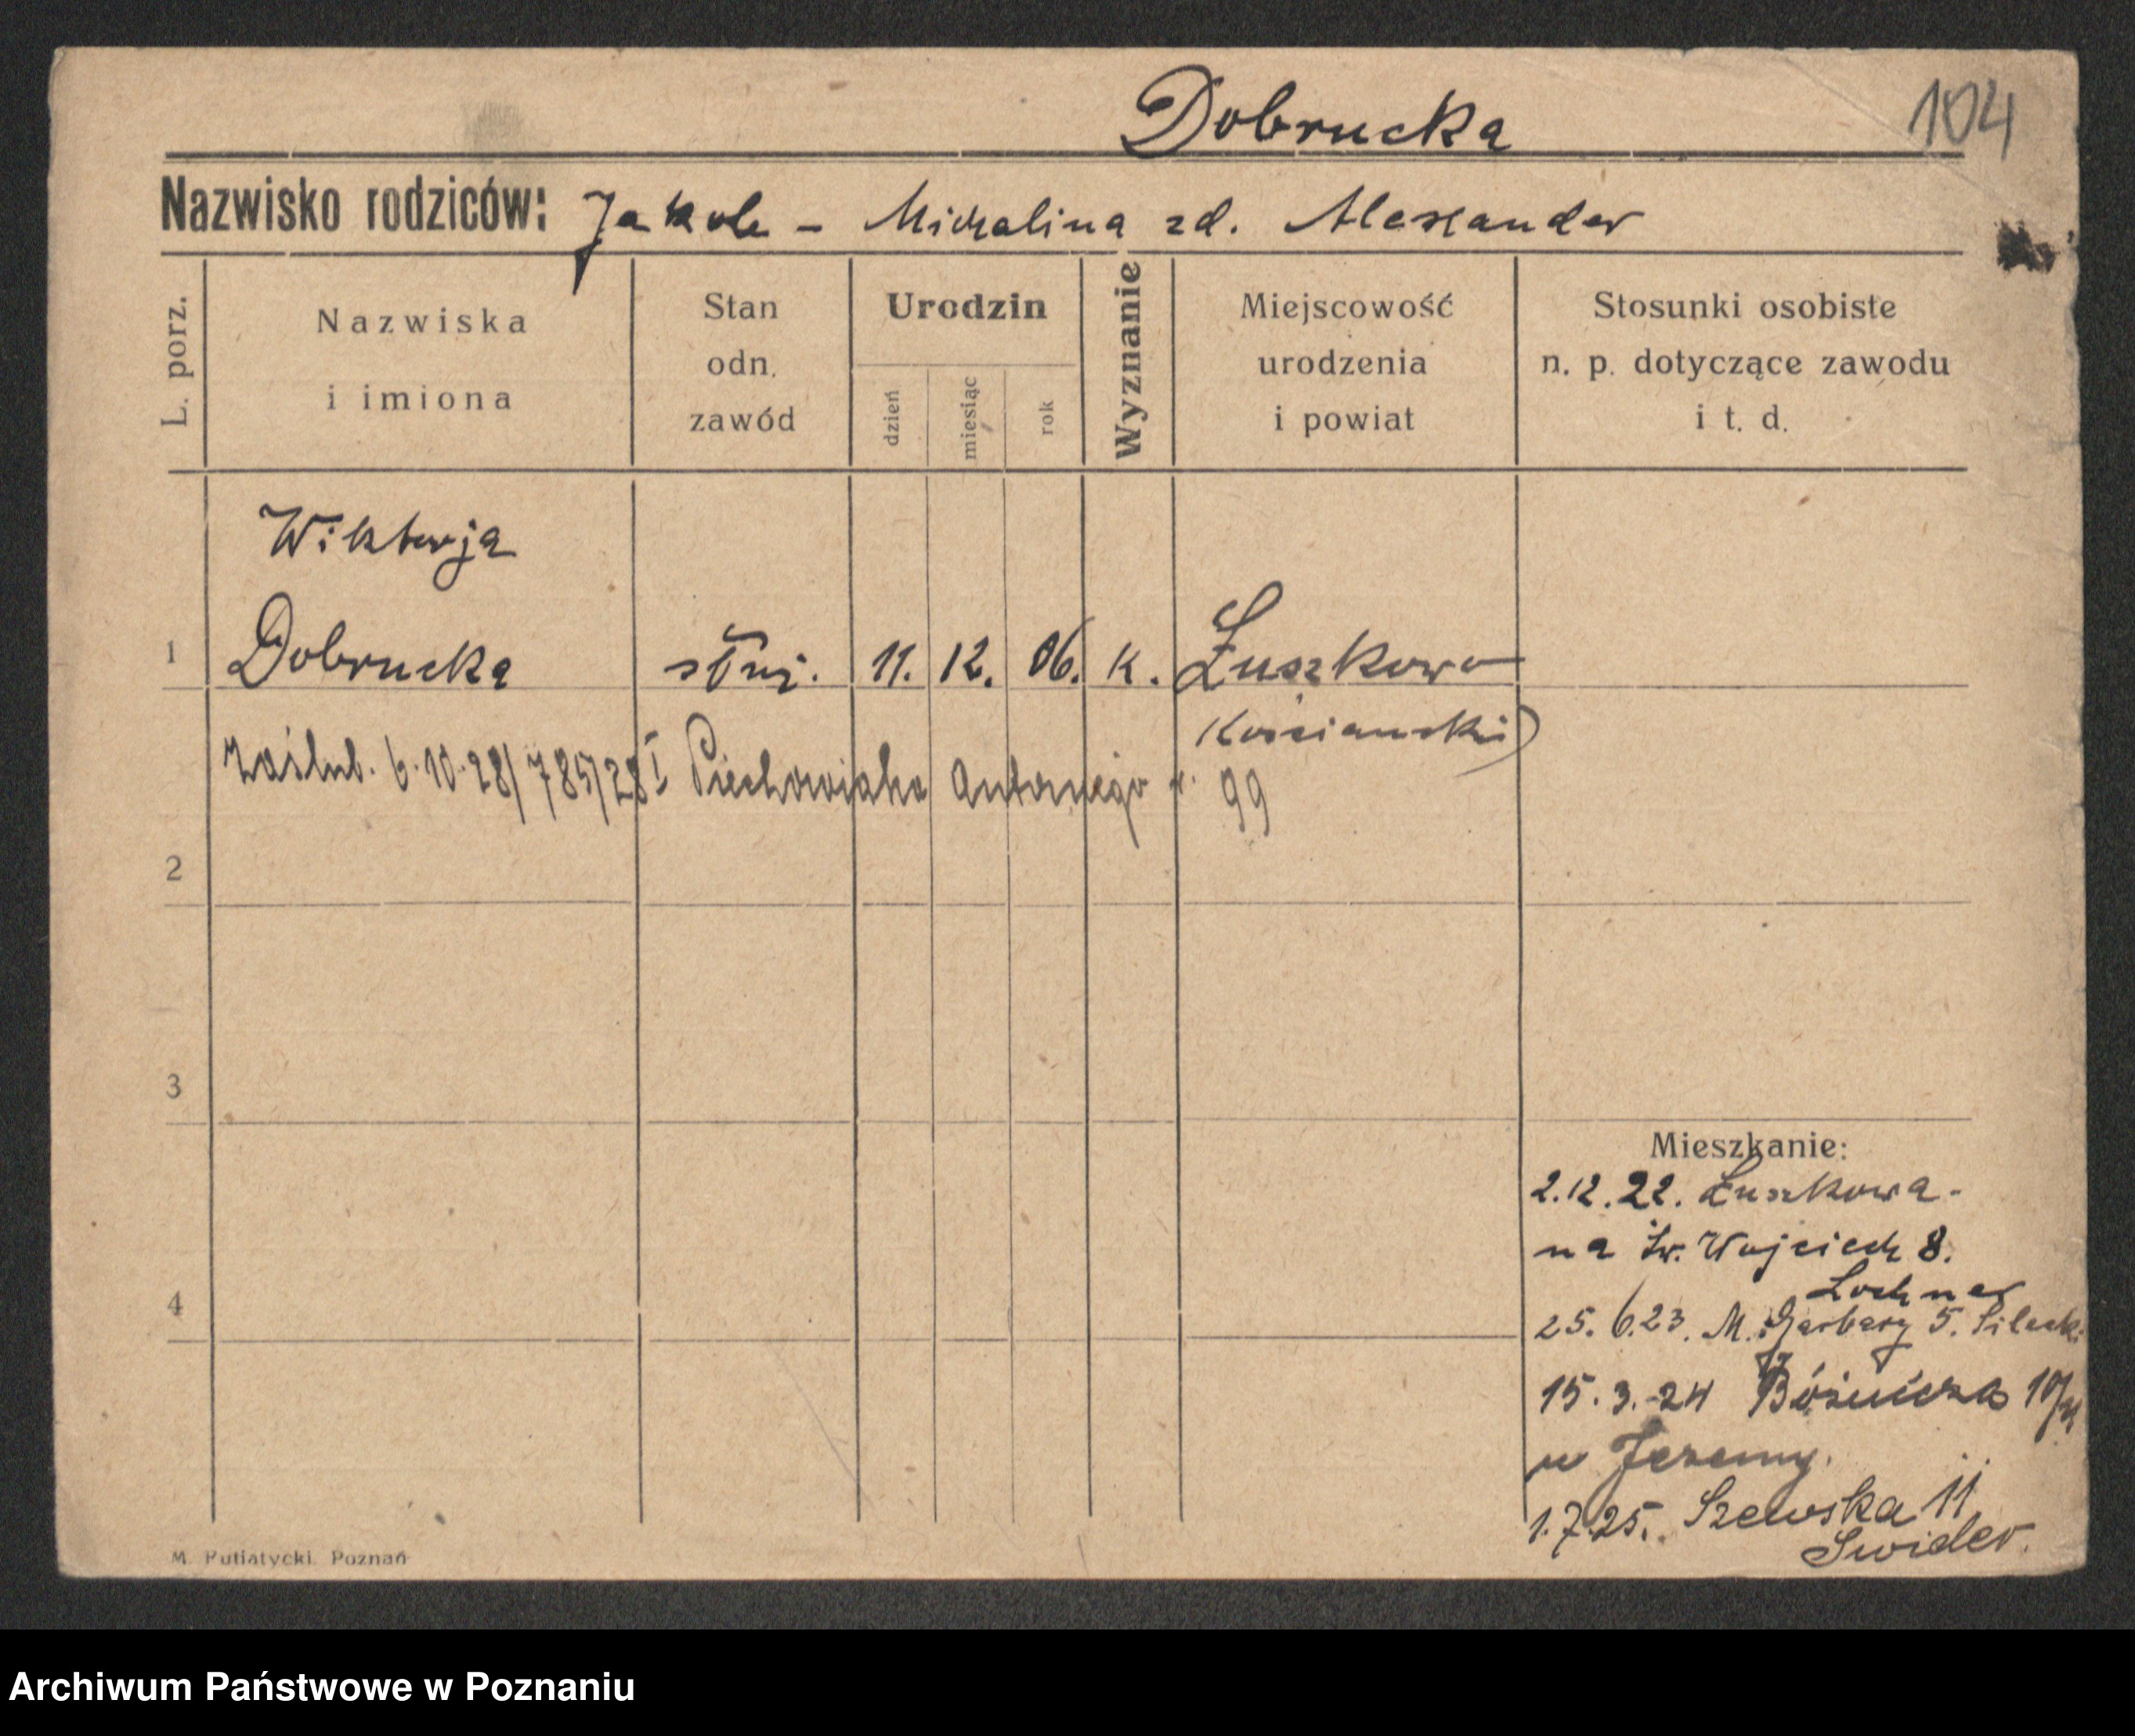 Dobrucka
104
Nazwisko rodziców: Jakob – Michalina zd. Alexander
L. porz.
Nazwiska
i imiona
Stan
odn.
zawód
Urodzin
dzień
miesiąc
rok
Wyznanie
Miejscowość
urodzenia
i powiat
Stosunki osobiste
n. p. dotyczące zawodu
i t. d.
Wiktorja
1 Dobrucka służ. 11. 12. 06. K. Łuszkowo
Kościański)
zaślub. 6.10.28/785/28 I Piechowiaka Antoniego 99
2
3
Mieszkanie:
2.12.22. Łuszkowa -
na Św. Wojciech 8.
Lochner
4
25.6.23. M. Garbary 5. Silecki
15.3.24 Bóżnicza 10/
w Jeremy.
1.7.25. Szewska 11
Swider.
M. Putiatycki. Poznań
Archiwum Państwowe w Poznaniu